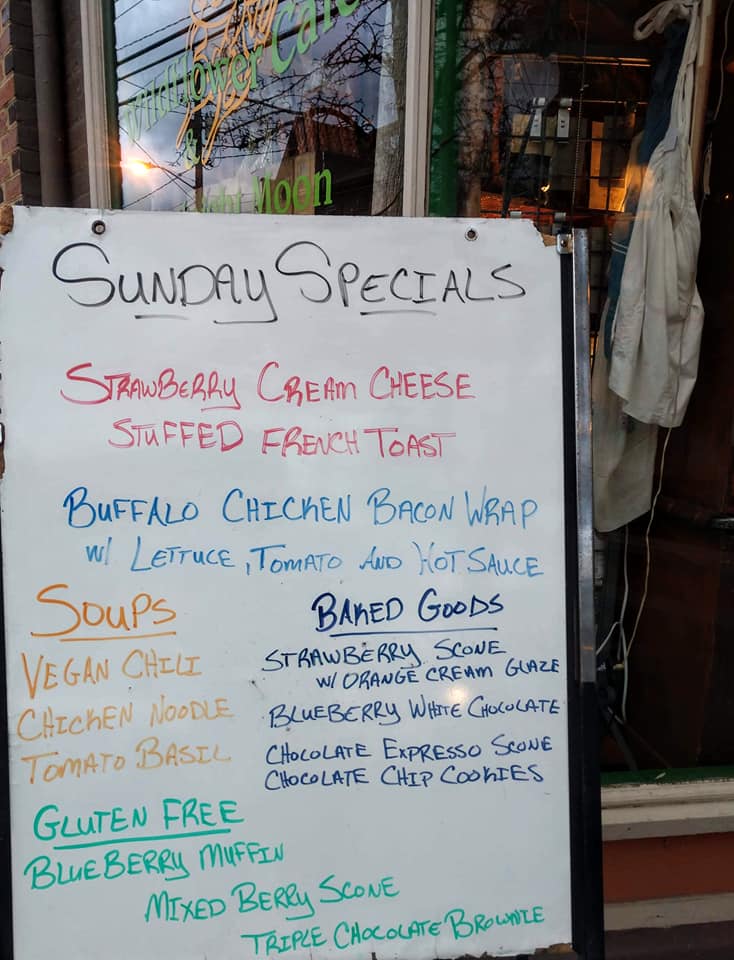 Wildflower Cafe
&
Moon
SUNDAY SPECIALS
STRAWBERRY CREAM CHEESE
STUFFED FRENCH TOAST
BUFFALO CHICKEN BACON WRAP
W/ LETTUCE, TOMATO AND HOT SAUCE
SOUPS
VEGAN CHILI
CHICKEN NOODLE
TOMATO BASIL
BAKED GOODS
STRAWBERRY SCONE
W/ ORANGE CREAM GLAZE
BLUEBERRY WHITE CHOCOLATE
CHOCOLATE EXPRESSO SCONE
CHOCOLATE CHIP COOKIES
GLUTEN FREE
BLUEBERRY MUFFIN
MIXED BERRY SCONE
TRIPLE CHOCOLATE BROWNIE